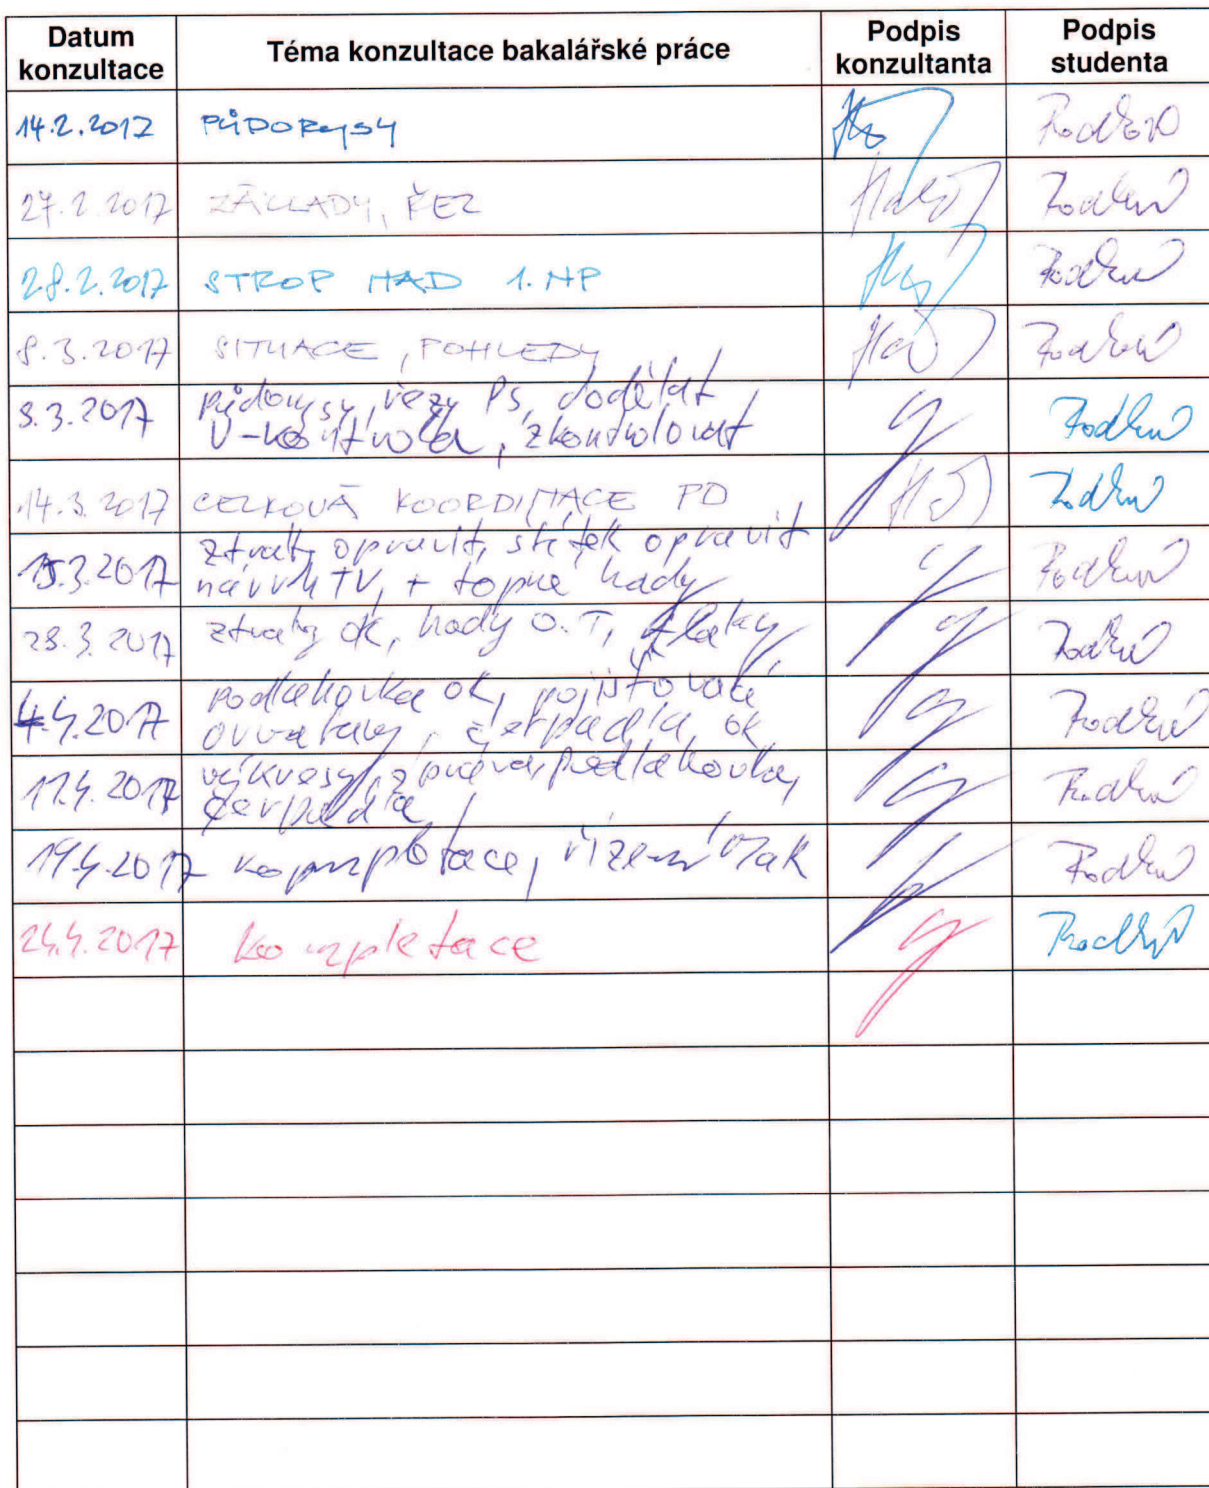 Datum konzultace
Téma konzultace bakalářské práce
Podpis konzultanta
Podpis studenta
14.2.2017 PŮDORYSY
27.2.2017 ZÁKLADY, ŘEZ
28.2.2017 STROP NAD 1.NP
8.3.2017 SITUACE, POHLEDY
8.3.2017 půdorysy, řezy PS, dodělat
U-kontrola, zkontrolovat
14.3.2017 CELKOVÁ KOORDINACE PD
15.3.2017 ztráty opravit, štítek opravit
návrh TV, + topné hady
28.3.2017 ztráty ok, hady O.T, tlaky
4.4.2017 podlahovka ok, pojišťovací
čerpadla ok
11.4.2017 výkresy, zpráva, podlahovka,
čerpadla
19.4.2017 řízení
24.4.2017 kompletace